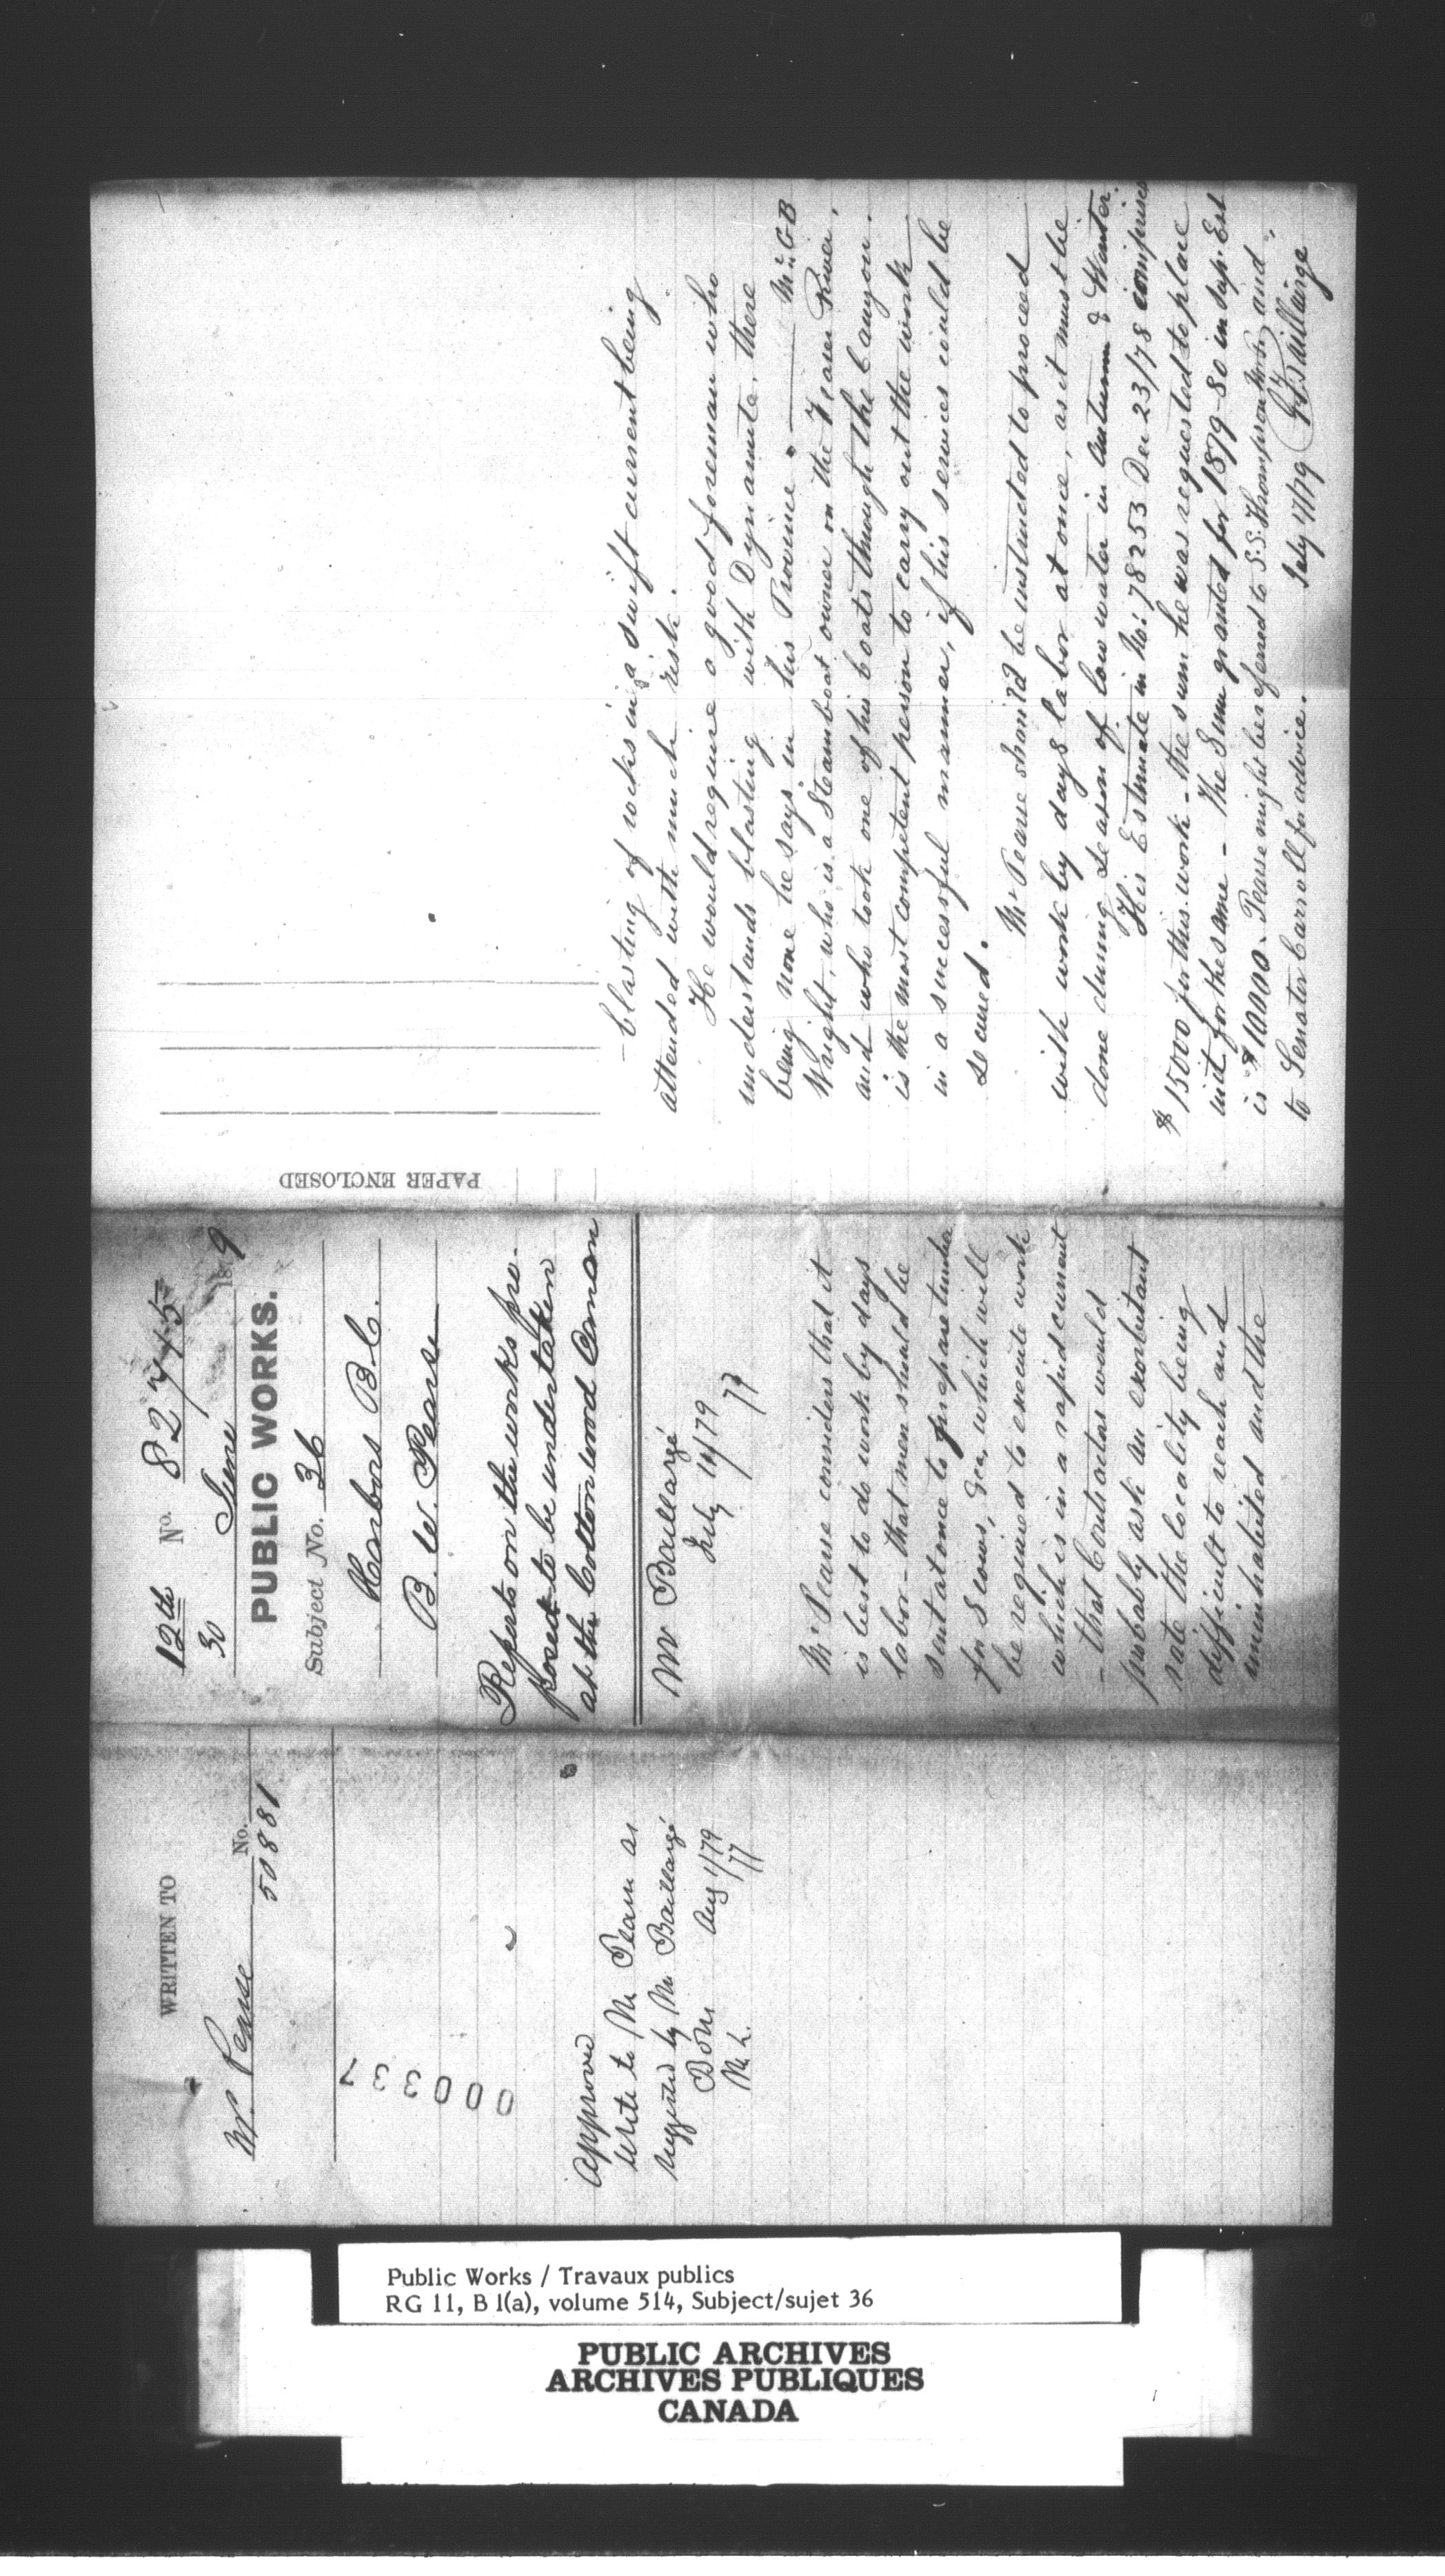 WRITTEN TO
Mr. Pearse No. 50881
000337
Approved
Write to Mr Pearse as
suggested by Mr Baillargé
Aug 1/79
12th No. 82745
30 June 1879
PUBLIC WORKS.
Subject No. 36
Harbors B.C.
B. W. Pearse
Reports on the works pro-
posed to be undertaken
at the Cottonwood Canon
Mr Baillargé
July 14/79
Mr Pearse considers that it
is best to do work by days
labor - that men should be
sent at once to prepare timber
for Scows, &ca, which will
be required to execute work
which is in a rapid current
- that Contractors would
probably ask an exorbitant
rate the locality being
difficult to reach and
uninhabited and the
PAPER ENCLOSED
- blasting of rocks in a swift current being
attended with much risk.
He would require a good foreman who
understands blasting with Dynamite, there
being none he says in his Province. — Mr. G B
Wright, who is a Steamboat owner on the Fraser River,
and who took one of his boats through the Canyon,
is the most competent person to carry out the work
in a successful manner, if his services could be
secured.
Mr Pearse should be instructed to proceed
with work by days labor at once, as it must be
done during season of low water in autumn & Winter.
His Estimate in No: 78253 Dec 23/78 comprises
$15000 for this work - the sum he was requested to place
in it for the same - The Sum granted for 1879-80 in sup. Est
is $10000. Pearse might be referred to S.S. Thompson and
to Senator Carroll for advice. July 17/79 G F Baillairgé
Public Works / Travaux publics
RG 11, B 1(a), volume 514, Subject/sujet 36
PUBLIC ARCHIVES
ARCHIVES PUBLIQUES
CANADA